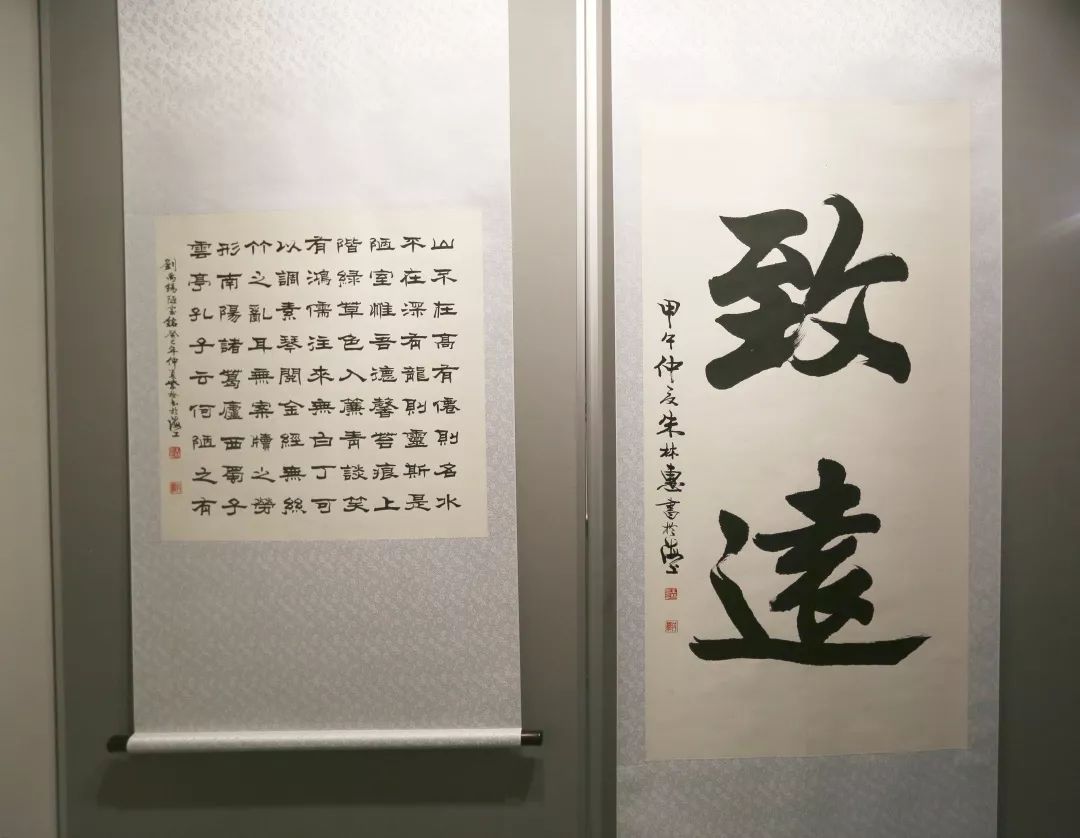 致遠
甲午仲夏朱林惠書於海上
山不在高有僊則名水
不在深有龍則靈斯是
陋室惟吾德馨苔痕上
階綠草色入簾青談笑
有鴻儒往来無白丁可
以調素琴閱金經無絲
竹之亂耳無案牘之勞
形南陽諸葛廬西蜀子
雲亭孔子云何陋之有
劉禹錫陋室銘癸巳年仲夏於海上